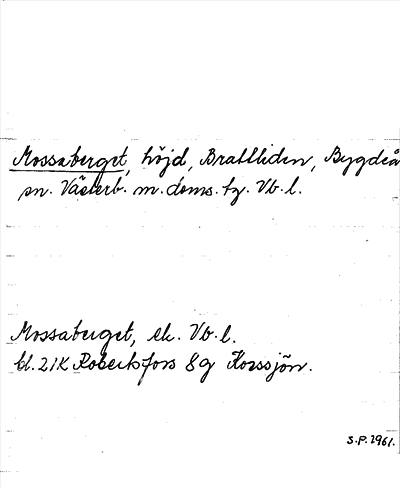 Mossaberget, höjd, Brattliden, Bygdeå
sn. Västerb. m. doms. tg. Vb. l.
Mossaberget, ek. Vb. l.
bl. 21K Robertsfors 8g Korssjön.
S.P. 1961.